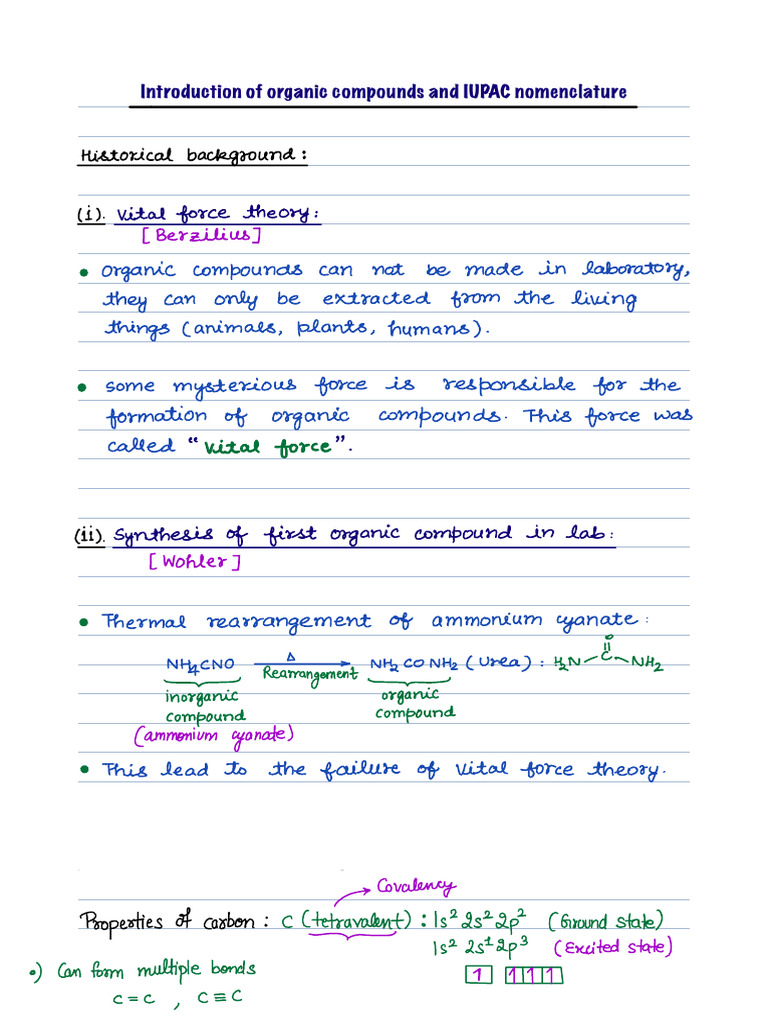 Introduction of organic compounds and IUPAC nomenclature
Historical background :
(i). Vital force theory :
[ Berzilius ]
• organic compounds can not be made in laboratory,
they can only be extracted from the living
things (animals, plants, humans).
• some mysterious force is responsible for the
formation of organic compounds. This force was
called “vital force”.
(ii). Synthesis of first organic compound in lab :
[ Wohler ]
• Thermal rearrangement of ammonium cyanate :
NH4CNO Δ Rearrangement NH2 CO NH2 (Urea) : H2N–C–NH2
O
inorganic compound
organic compound
(ammonium cyanate)
• This lead to the failure of Vital force theory.
Covalency
Properties of carbon : C (tetravalent) : 1s² 2s² 2p² (Ground state)
1s² 2s¹ 2p³ (Excited state)
1 1 1 1
•) Can form multiple bonds
C = C , C ≡ C